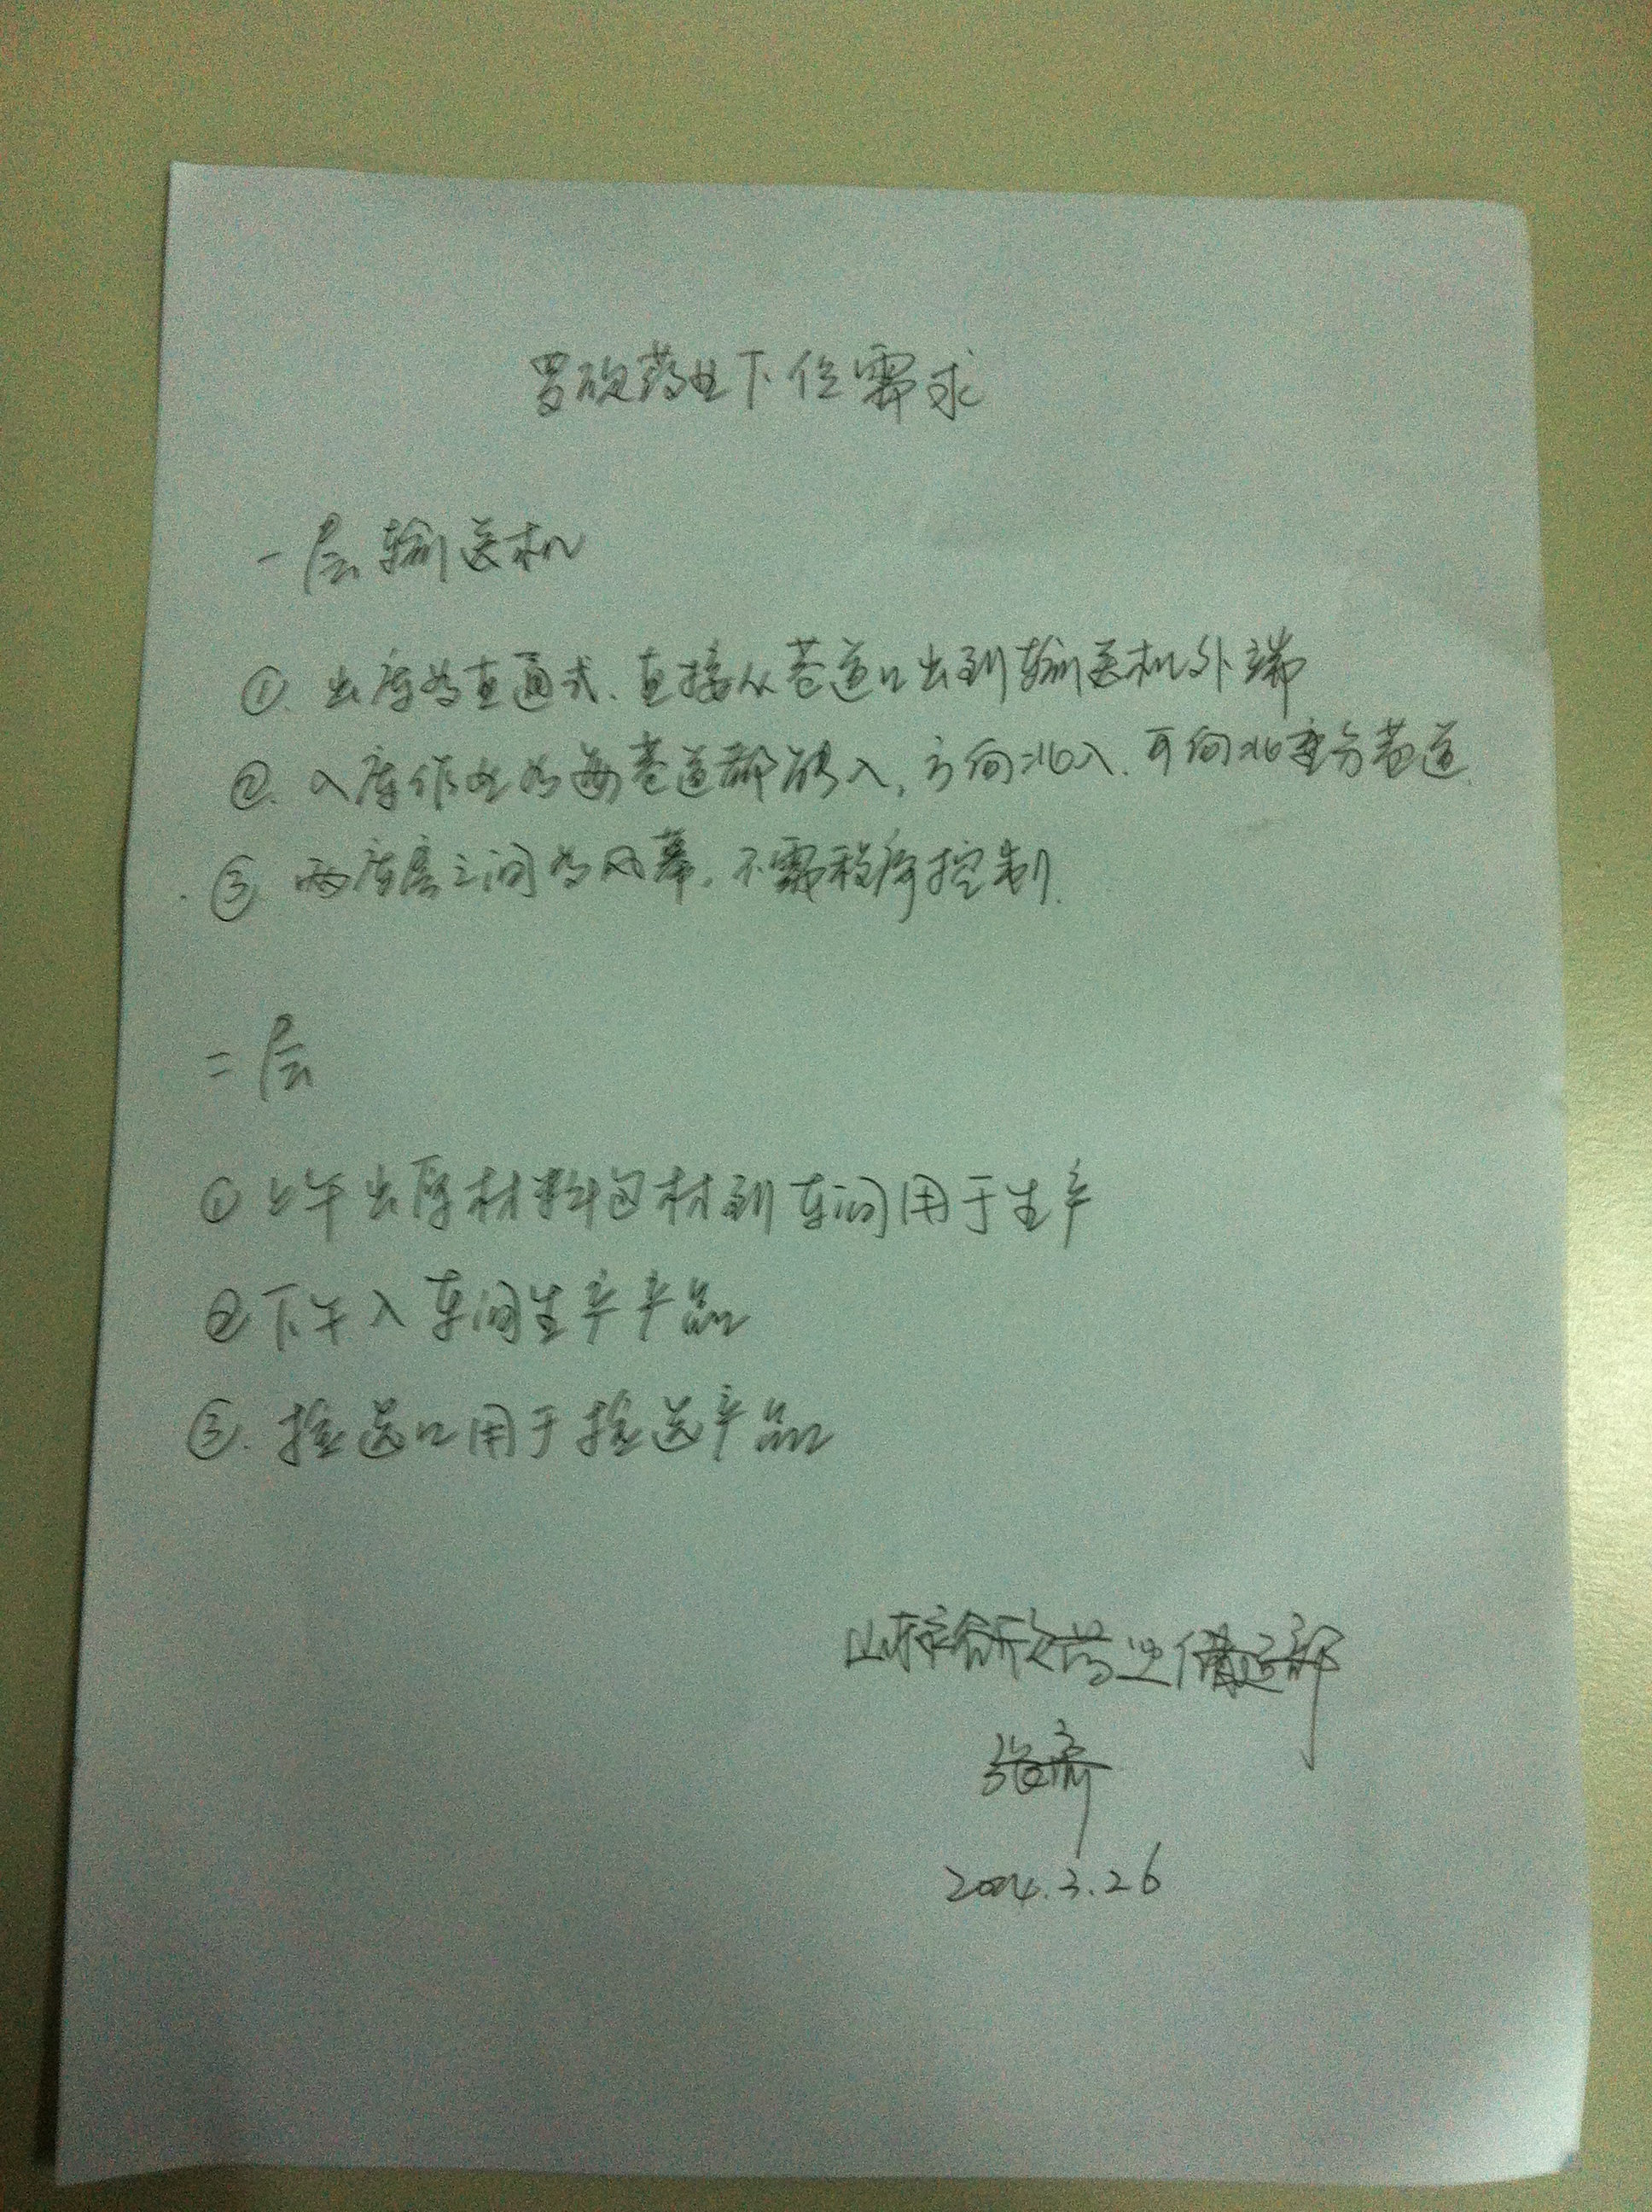 罗欣药业下位需求
一层输送机
① 出库为直通式、直接从巷道口出到输送机外端
② 入库作业为每巷道都能入,方向北入、可向北至各巷道.
③ 两库房之间为风幕,不需程序控制.
二层
① 上午出原材料包材到车间用于生产
② 下午入车间生产产品
③. 捡选口用于捡选产品
山东罗欣药业储运部
张
3.26